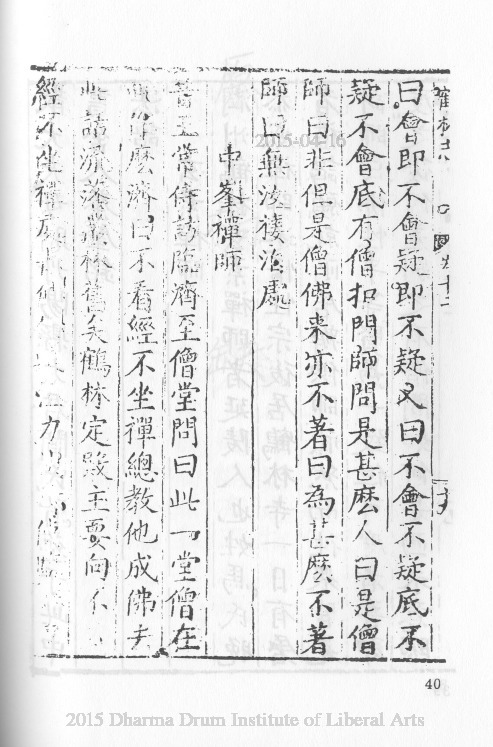 曰會即不會疑即不疑又曰不會不疑底不
疑不會底有僧扣門師問是甚麼人曰是僧
師曰非但是僧佛来亦不著曰為甚麼不著
師曰無汝棲泊處
中峯禪師
昔王常侍訪臨濟至僧堂問曰此一堂僧在
麼濟曰不看經不坐禪總教他成佛去
此話流落叢林舊矣鶴林定主要向不
經不坐禪處 力
2015-04-16
40
2015 Dharma Drum Institute of Liberal Arts